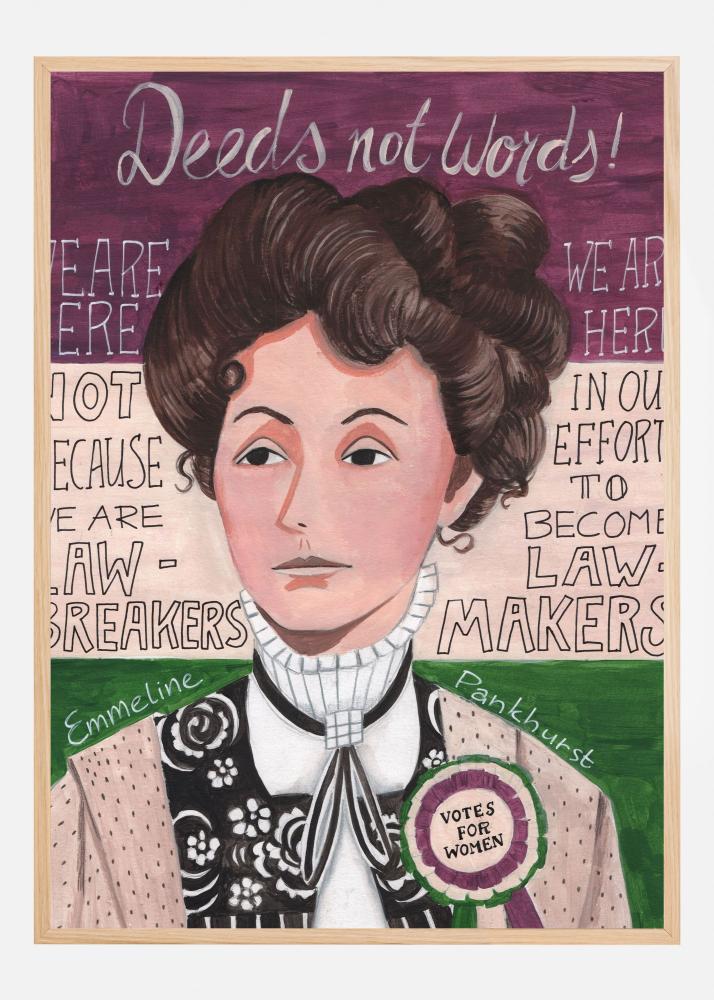 Deeds not Words!
WE ARE
ERE
NOT
ECAUSE
WE ARE
LAW -
BREAKERS
WE AR
HER
IN OU
EFFORT
TO
BECOME
LAW-
MAKERS
Emmeline Pankhurst
VOTES
FOR
WOMEN